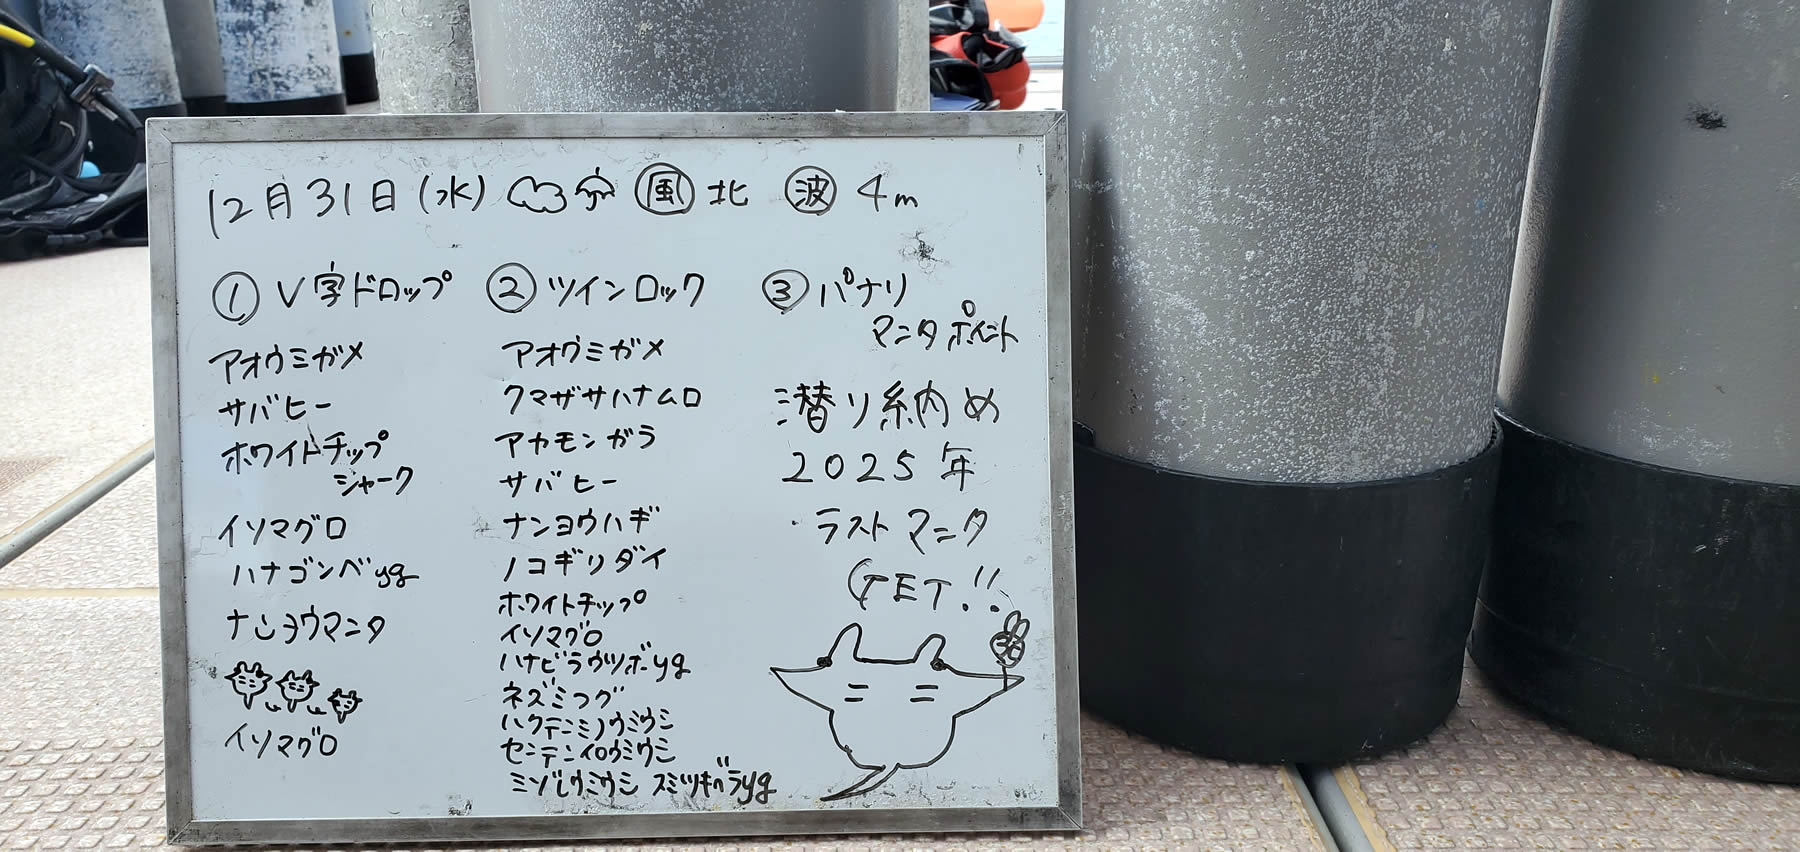 12月31日(水) 風 北 波 4m
① V字ドロップ
アオウミガメ
サバヒー
ホワイトチップ
シャーク
イソマグロ
ハナゴンベyg
ナンヨウマンタ
イソマグロ
② ツインロック
アオウミガメ
クマザサハナムロ
アカモンガラ
サバヒー
ナンヨウハギ
ノコギリダイ
ホワイトチップ
イソマグロ
ハナビラウツボyg
ネズミフグ
ハクテンミノウミウシ
センテンイロウミウシ
ミゾレウミウシ スミツキベラyg
③ パナリ
マンタポイント
潜り納め
2025年
ラストマンタ
GET!!